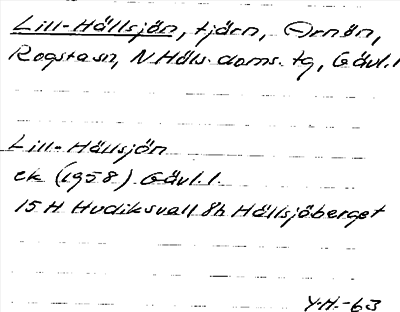 Lill-Hällsjön, tjärn, Arnön,
Rogsta sn, N.Häls. doms. tg, Gävl.l
Lill-Hällsjön
ek (1958) Gävl.l.
15 H Hudiksvall 8h Hällsjöberget
Y.H.-63